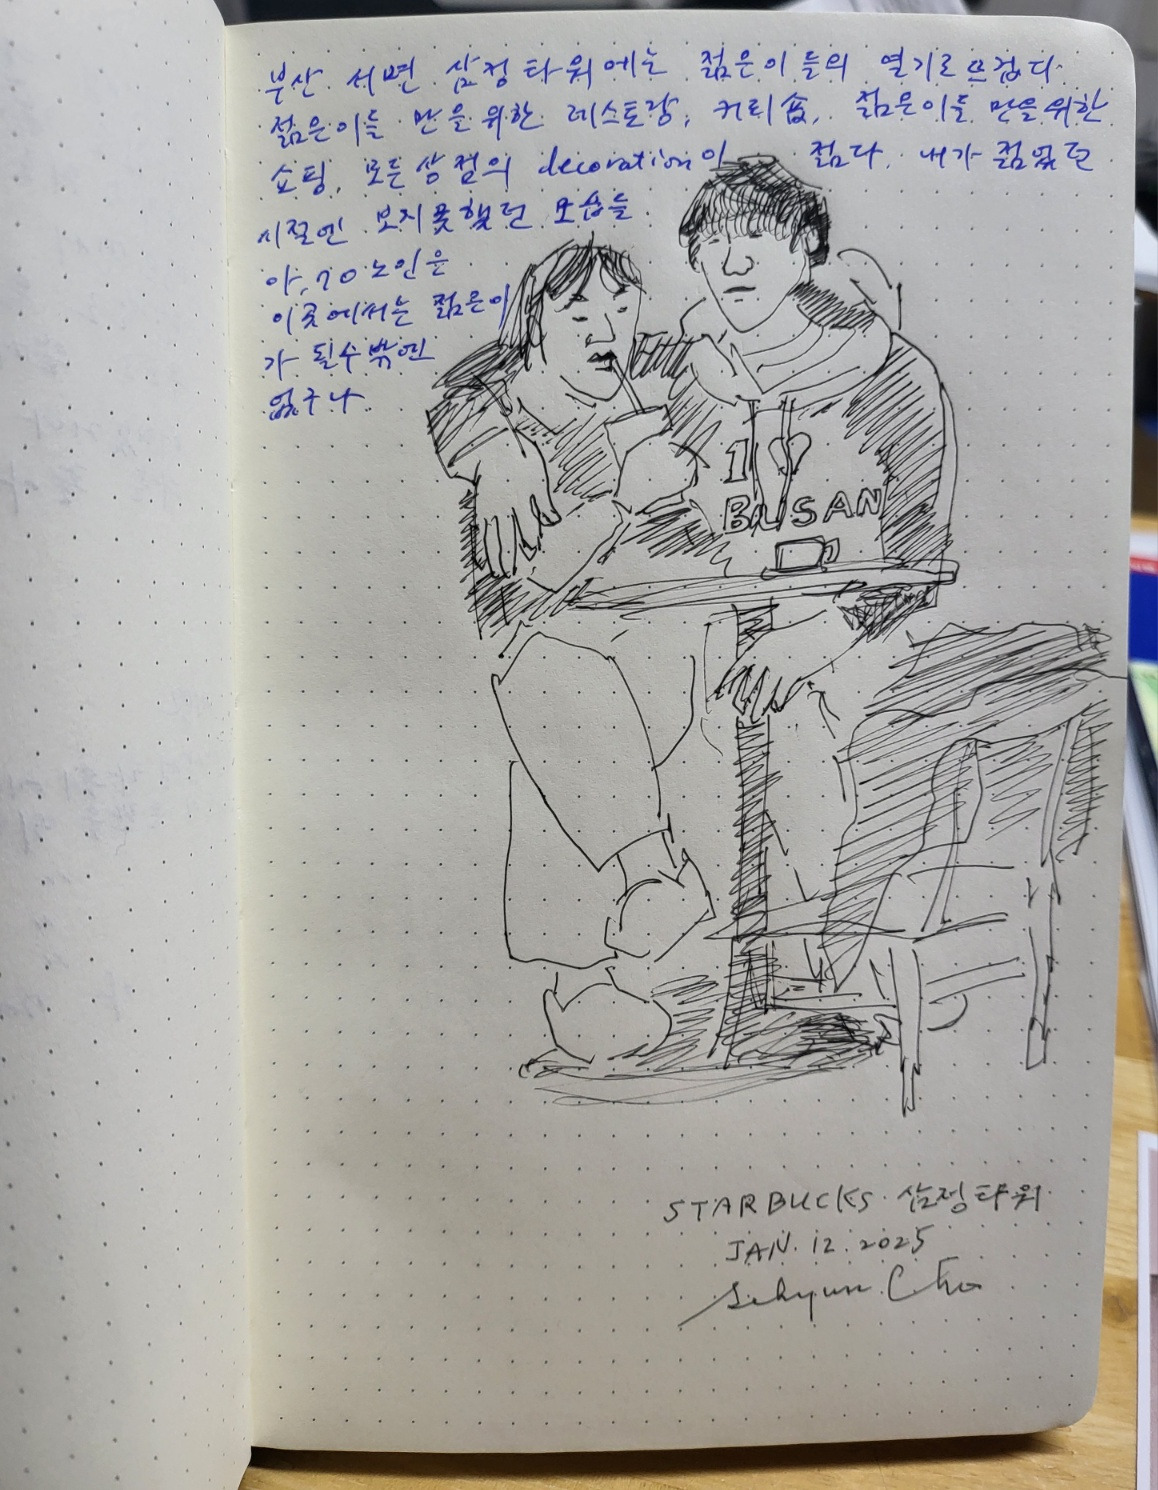 부산 서면 삼정타워에는 젊은이들의 열기로 뜨겁다.
젊은이들 만을 위한 레스토랑, 커피숍, 젊은이들 만을 위한
쇼핑, 모든 상점의 decoration이 젊다. 내가 젊었던
시절엔 보지못했던 모습들
아, 70 노인은
이곳에서는 젊은이
가 될수 밖엔
없구나
I ♡
BUSAN
STARBUCKS 삼정타워
JAN. 12. 2025
Sehyun Cho